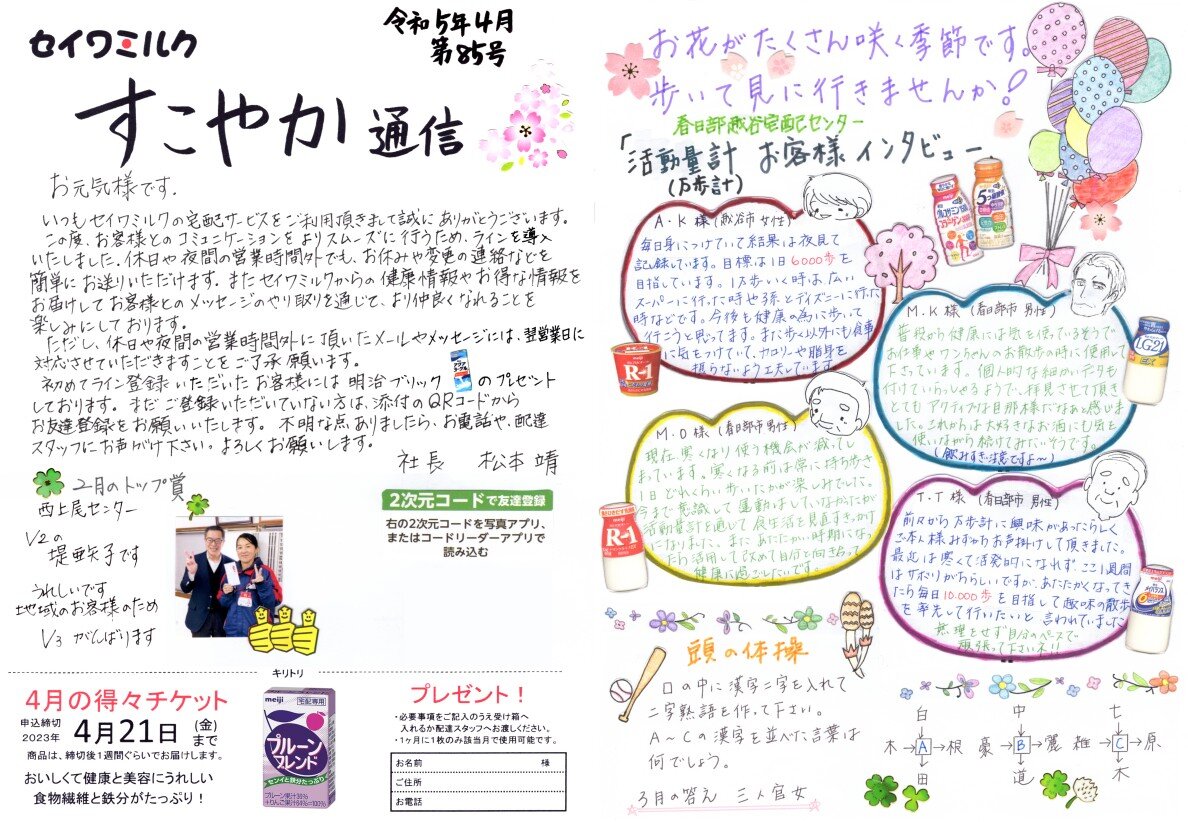 セイワミルク
令和5年4月
第85号
すこやか通信
お元気様です.
いつもセイワミルクの宅配サービスをご利用頂きまして誠にありがとうございます。
この度、お客様とのコミュニケーションをよりスムーズに行うため、ラインを導入
いたしました。休日や夜間の営業時間外でも、お休みや変更の連絡などを
簡単にお送りいただけます。またセイワミルクからの健康情報やお得な情報を
お届けしてお客様とのメッセージのやり取りを通じて、より仲良くなれることを
楽しみにしております。
ただし、休日や夜間の営業時間外に頂いたメールやメッセージには、翌営業日に
対応させていただきますことをご了承願います。
初めてライン登録いただいたお客様には明治ブリックのプレゼント
しております。まだご登録いただいていない方は、添付のQRコードから
お友達登録をお願いいたします。不明な点ありましたら、お電話や、配達
スタッフにお声がけ下さい。よろしくお願いします。
社長 松本 靖
2月のトップ賞
西上尾センター
V2の
堤亜矢子です
うれしいです
地域のお客様のため
V3 がんばります
2次元コードで友達登録
右の2次元コードを写真アプリ、
またはコードリーダーアプリで
読み込む
キリトリ
4月の得々チケット
申込締切
2023年
4月21日(金)まで
商品は、締切後1週間ぐらいでお届けします。
おいしくて健康と美容にうれしい
食物繊維と鉄分がたっぷり！
meiji
宅配専用
プルーン
ブレンド
センイと鉄分たっぷり
プルーン果汁36%
+りんご果汁64%=100%
プレゼント！
・必要事項をご記入のうえ受け箱へ
入れるか配達スタッフへお渡しください。
・1ヶ月に1枚のみ該当月で使用可能です。
お名前 様
ご住所
お電話
お花がたくさん咲く季節です。
歩いて見に行きませんか？
春日部越谷宅配センター
「活動量計 お客様インタビュー
(万歩計)
A.K様(越谷市 女性)
毎日身につけていて結果は夜見て
記録しています。目標は1日6000歩を
目指しています。1万歩いく時は、広い
スーパーに行った時や孫とディズニーに行った
時などです。今後も健康の為に歩いて
行こうと思ってます。また歩く以外にも食事
に気をつけていて、カロリーや脂身を
摂らないよう工夫しています
M.K様(春日部市 男性)
普段から健康には気を使っているそうで
お仕事やワンちゃんのお散歩の時に使用して
下さっています。個人的な細かいデータも
付けていらっしゃるようで、拝見させて頂き
とてもアクティブな旦那様だなぁと感じま
した。これからは大好きなお酒にも気を
使いながら続けてみたいそうです。
(飲みすぎ注意ですよ〜)
M.O様(春日部市男性)
現在寒くなり使う機会が減ってし
まっています。寒くなる前は常に持ち歩き
1日どれくらい歩いたかが楽しみでした。
今まで意識して運動はしていなかったが
活動量計を通じて食生活を見直すきっかけ
になりました。またあたたかい時期になっ
たら活用して改めて自分と向き合って
健康に過ごしたいです。
T.T様(春日部市 男性)
前々から万歩計に興味があったらしく
ご本人様みずからお声掛けして頂きました。
最近は寒くて活発的になれず、ここ1週間
はサボりがちらしいですが、あたたかくなってき
たら毎日10.000歩を目指して趣味の散歩
を率先して行いたいと言われていました
無理をせず自分のペースで
頑張って下さいネ!!
R-1
R-1
LG21
頭の体操
口の中に漢字二字を入れて
二字熟語を作って下さい。
A〜Cの漢字を並べた言葉は
何でしょう。
3月の答え 三人官女
白 中 七
↓ ↓ ↓
木→A→根 豪→B→麗 雑→C→原
↓ ↓ ↓
田 道 木